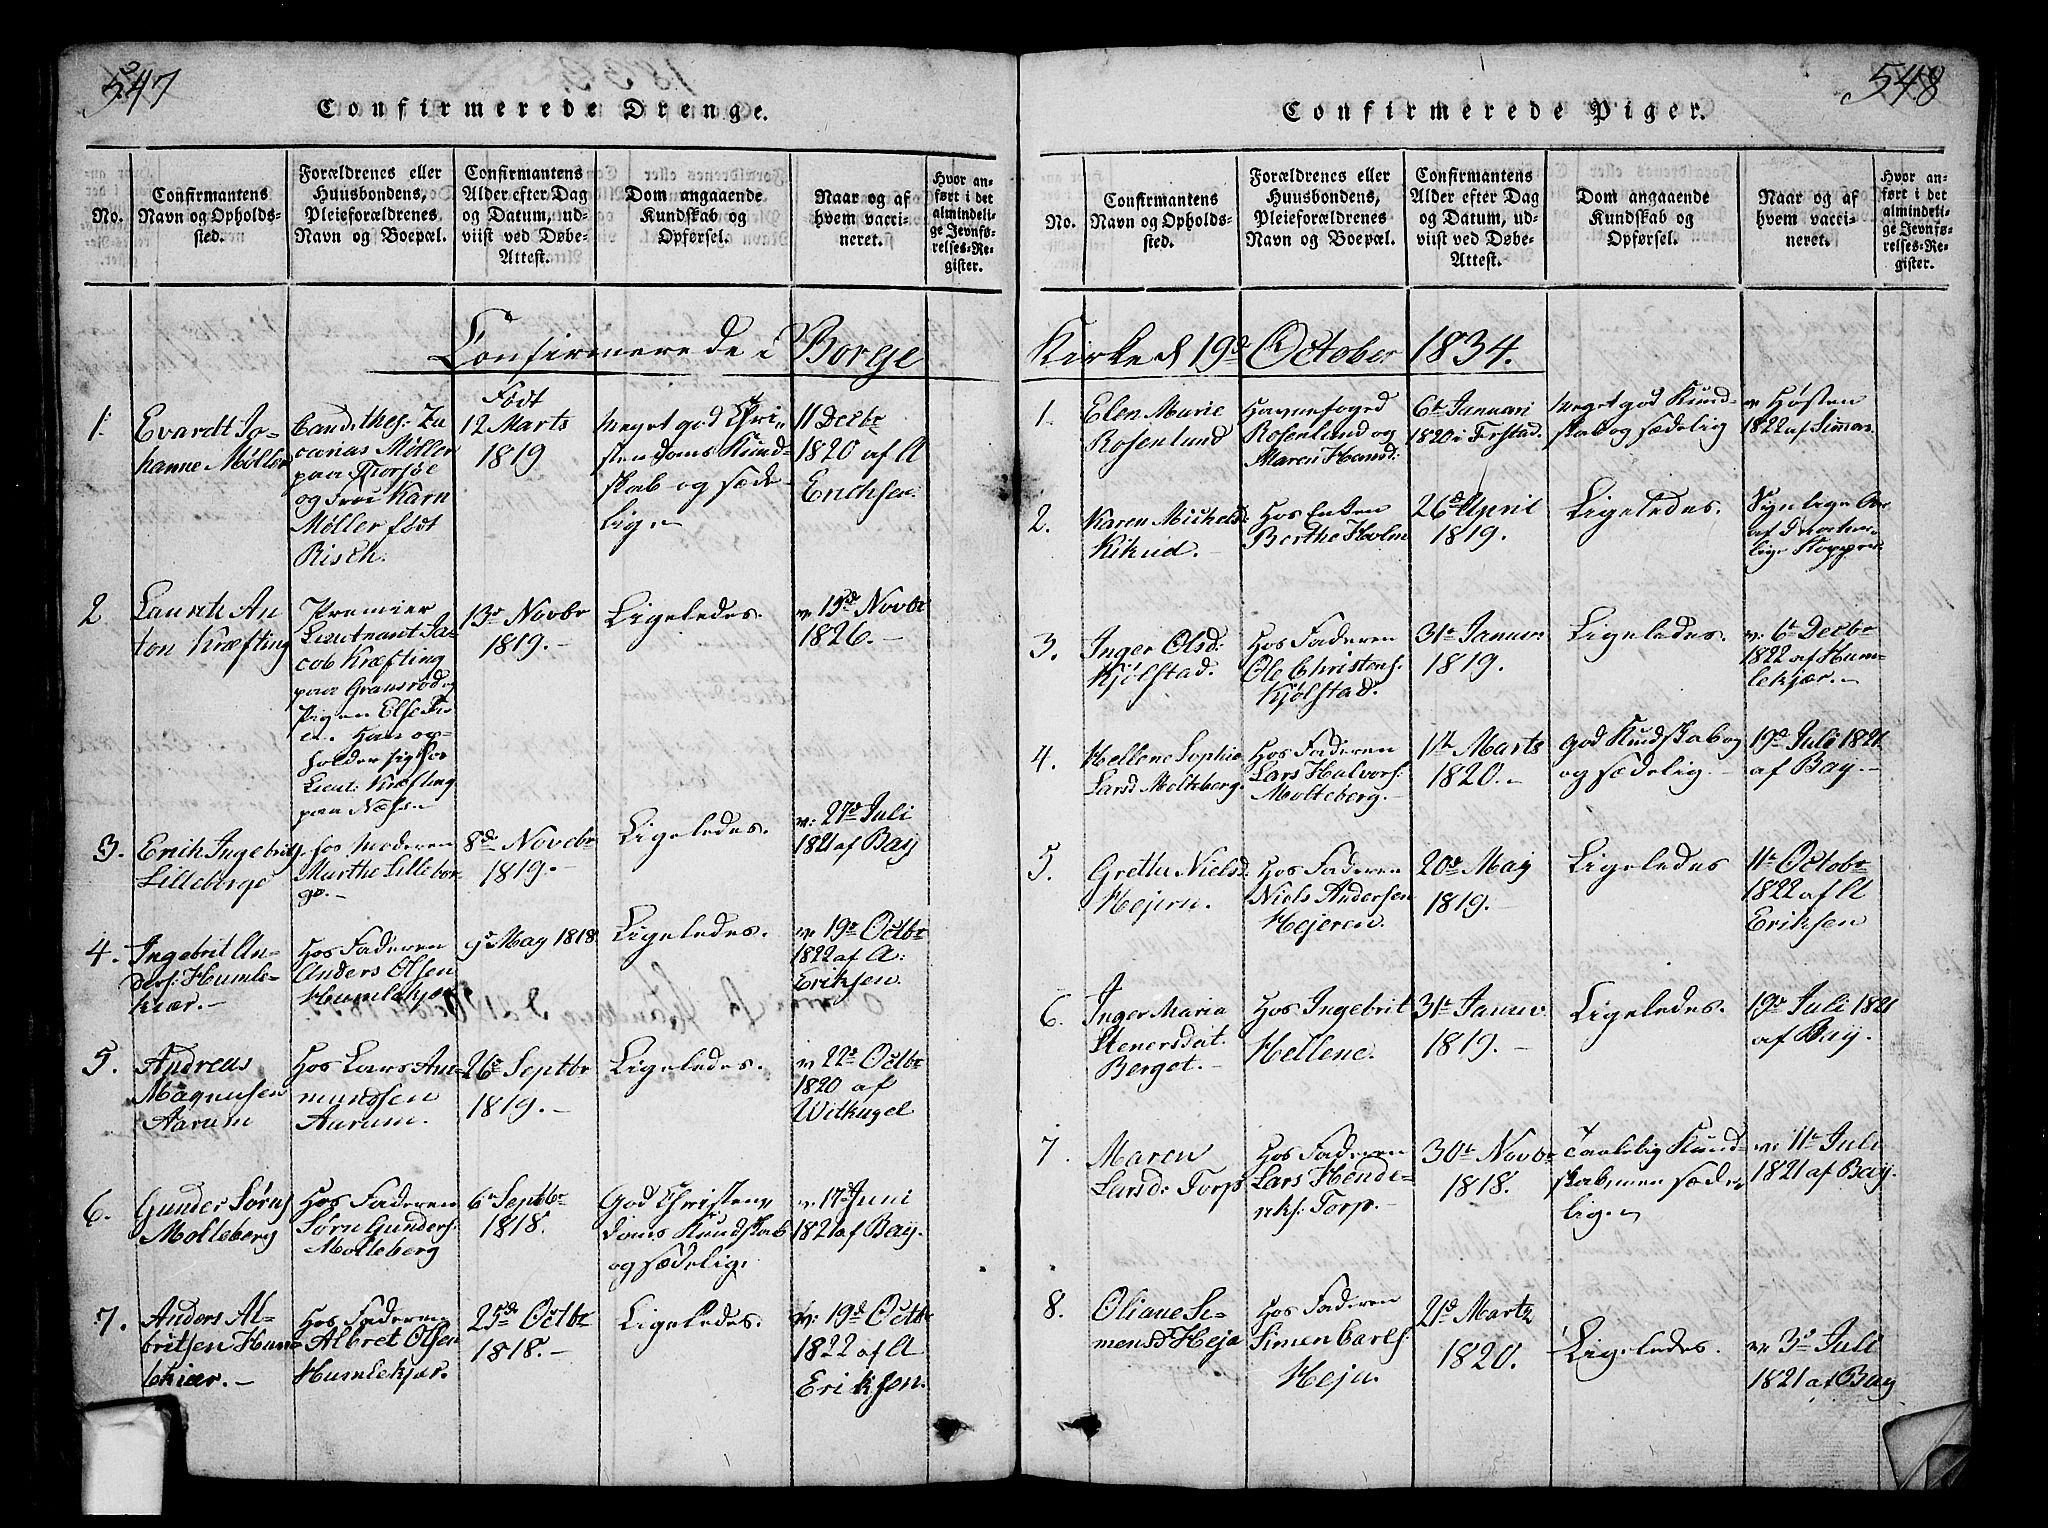 547
Confirmerede Drenge.
No.
Confirmantens
Navn og Opholds-
sted.
Forældrenes eller
Huusbondens,
Pleieforældrenes
Navn og Boepæl.
Confirmantens
Alder efter Dag
og Datum, ud-
viist ved Døbe-
Attest.
Dom angaaende
Kundskab og
Opførsel.
Naar og af
hvem vacci-
neret.
Hvor an-
ført i det
almindeli-
ge Jevnfø-
relses-Re-
gister.
Confirmerede i Borge
1.
Evardt Jo-
hanne Møller
Cand: thes: Za-
carias Møller
paa Torsøe
og Frue Karn
Møller født
Risch.
Født
12 Marts
1819
Meget god Chri-
stendoms Kund-
skab og sæde-
lig.
11 Decbr
1820 af A
Erichsen.
2
Lauritz An
ton Kræfting
Premier
Lieutnant Ja-
cob Kræfting
paa Gransrød og
Pigen Else
Han op-
holder sig hos
Lieut: Kræfting
paa Næss
13de Novbr
1819.
Ligeledes.
v: 15de Novbr
1826.
3.
Erich Ingebritz.
Lilleborge
hos Moderen
Marthe Lillebor-
ge.
8de Novebr
1819.
Ligeledes.
v: 27de Juli
1821 af Bay
4.
Ingebrit An-
ders: Humle-
kiær.
Hos Faderen
Anders Olsen
Humlekjær
9de May 1818.
Ligeledes.
v: 19de Octbr
1822 af A:
Eriksen.
5.
Andreas
Magnusen
Aarum
Hos Lars Am-
mundsen
Aarum.
26de Septbr
1819.
Ligeledes.
v: 22de Octbr
1820 af
Witkugel
6.
Gunder Sørns
Molteberg
Hos Faderen
Sørn Gunders:
Molteberg
6te Septbr
1818.
God Christen-
doms Kundskab
og sædelig.
v: 17de Juni
1821 af Bay.
7.
Anders Al-
britsen Hum-
lekiær.
Hos Faderen
Albret Olsen
Humlekjær.
25de Octbr
1818.
Ligeledes.
v: 19de Octbr
1822 af A
Eriksen.
548
Confirmerede Piger.
No.
Confirmantens
Navn og Opholds-
sted.
Forældrenes eller
Huusbondens,
Pleieforældrenes
Navn og Boepæl.
Confirmantens
Alder efter Dag
og Datum, ud-
viist ved Døbe-
Attest.
Dom angaaende
Kundskab og
Opførsel.
Naar og af
hvem vacci-
neret.
Hvor an-
ført i det
almindeli-
ge Jevnfø-
relses-Re-
gister.
Kirke d 19de October 1834.
1.
Elen Marie
Rosenlund
Havnefoged
Rosenlund og
Maren Hansd:
6te Januari
1820 i
Meget god Kund-
skab og sædelig
v: Høsten
1822 af Simmon.
2.
Karen Michelsd:
Kikud.
Hos Enken
Berthe Holm
26de April
1819.
Ligeledes.
Synlige Ar
af
lige Kopper
3.
Inger Olsd:
Kjølstad.
Hos Faderen
Ole Christens:
Kjølstad.
31te Januar
1819.
Ligeledes.
v: 6te Decbr
1822 af Hum-
lekjær.
4.
Hellene Sophie
Larsd Molteberg.
Hos Faderen
Lars Halvors:
Molteberg.
1te Marts
1820.
God Kundskab og
og sædelig.
19de Juli 1821
af Bay.
5.
Grethe Nielsd:
Hejern.
Hos Faderen
Niels Andersen
Hejeren.
20de May
1819.
Ligeledes
11te Octobr
1822 af A
Eriksen
6.
Inger Maria
Stenersdat.
Berget.
Hos Ingebrit
Hellene.
31te Januar
1819.
Ligeledes.
19de Juli 1821
af Bay.
7.
Maren
Larsd: Torp
Hos Faderen
Lars Hende-
riks: Torp.
30te Novbr
1818.
Taalelig Kund-
skab, men sæde-
lig.
v: 11te Juli
1821 af Bay.
8.
Oliane Si-
mensd Heja
Hos Faderen
Simen Carls:
Heja.
21de Martz
1820.
Ligeledes.
v: 3de Juli
1821 af Bay